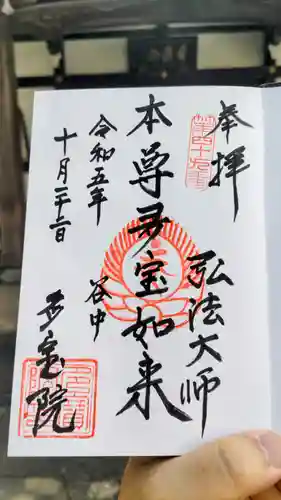 奉拝
弘法大師
第四十九番
本尊多宝如来
谷中
令和五年
十月二十二日
多宝院